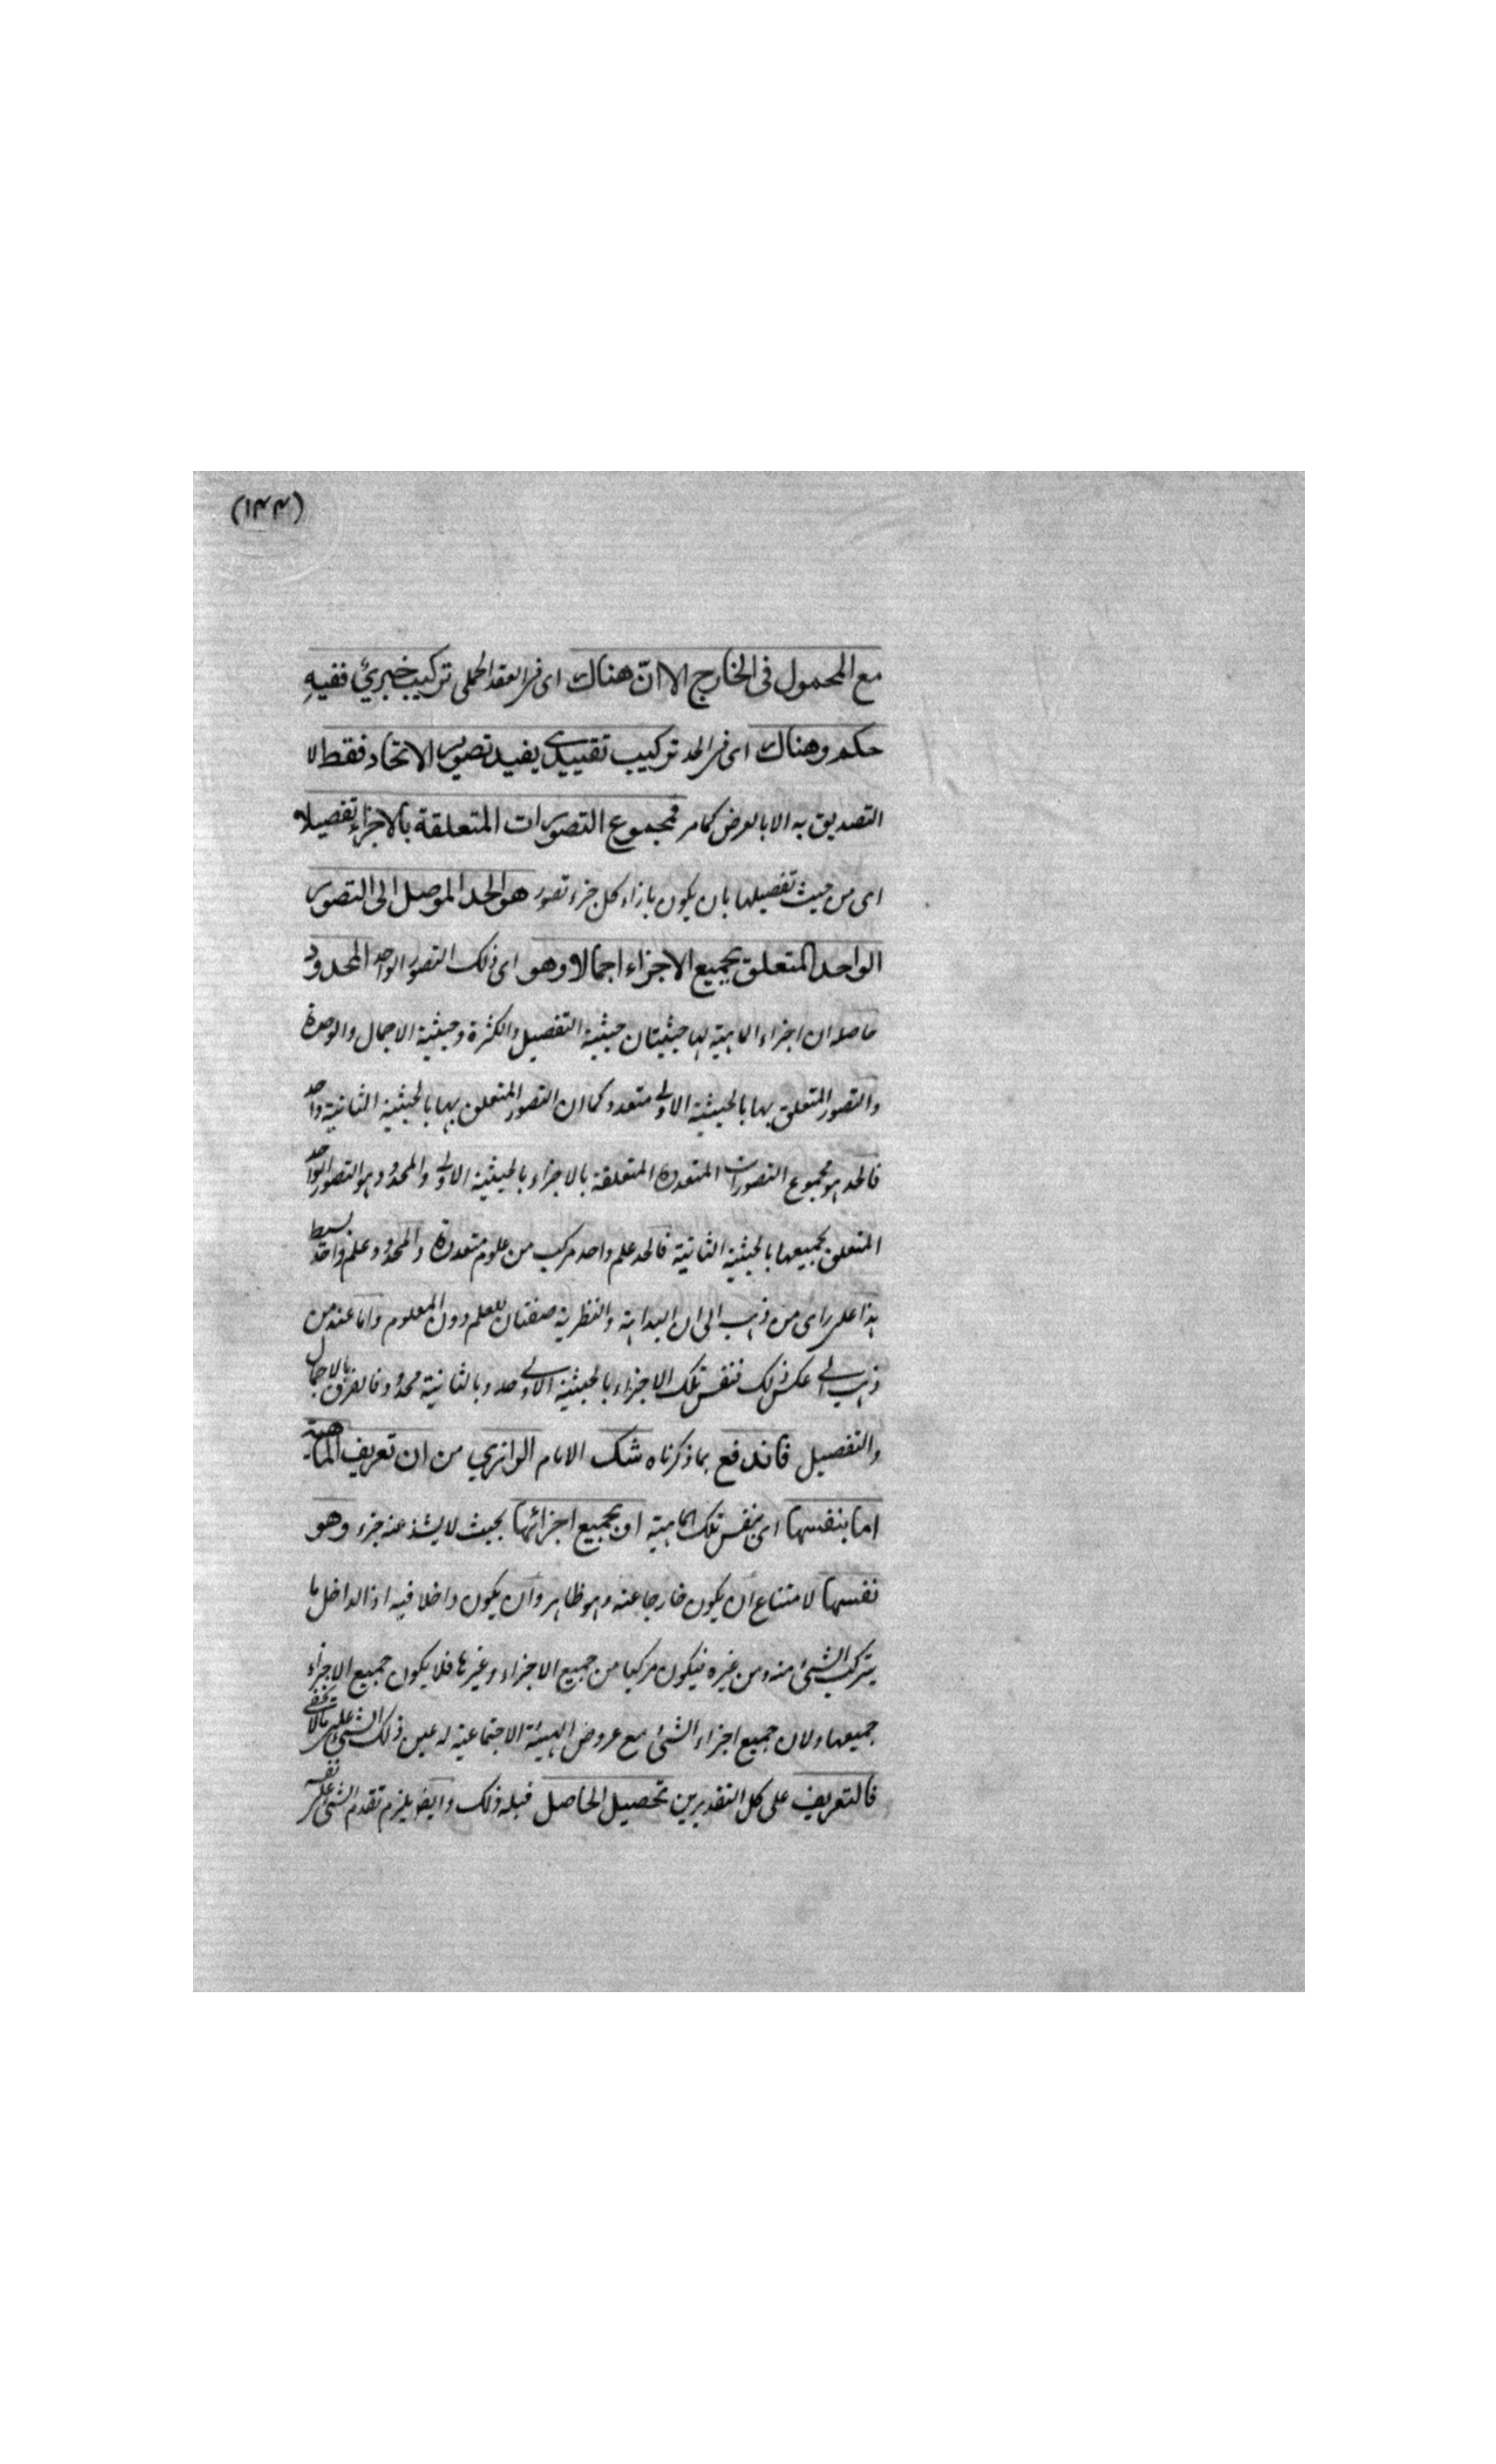 (١٣٣)
مع المحمول فى الخارج الا ان هناك اى فى العقد الحملى تركيب خبرىّ ففيه
حكم وهناك اى فى الحد تركيب تقييدى يفيد تصوير الاتحاد فقط لا
التصديق به الا بالعرض كما مر فمجموع التصورات المتعلقة بالاجزاء تفصيلا
اى من حيث تفصيلها بان يكون بازاء كل جزء تصور هو الحد الموصل الى التصور
الواحد المتعلق بجميع الاجزاء اجمالا وهو اى ذلك التصور الواحد المحدود
حاصله ان اجزاء الماهية لها حيثيتان حيثية التفصيل والكثرة وحيثية الاجمال والوحدة
والتصور المتعلق بها بالحيثية الاولى متعدد كما ان التصور المتعلق بها بالحيثية الثانية واحد
فالحد هو مجموع التصورات المتعددة المتعلقة بالاجزاء بالحيثية الاولى والمحدود هو التصور الواحد
المتعلق بجميعها بالحيثية الثانية فالحد علم واحد مركب من علوم متعددة والمحدود علم واحد بسيط
هذا على راى من ذهب الى ان البداهة والنظرية صفتان للعلم دون المعلوم واما عند من
ذهب الى عكس ذلك فنفس تلك الاجزاء بالحيثية الاولى حد وبالثانية محدود فالفرق بالاجمال
والتفصيل فاندفع بما ذكرناه شك الامام الرازي من ان تعريف الماهية
اما بنفسها اى بنفس تلك الماهية او بجميع اجزائها بحيث لا يشذ عنه جزء وهو
نفسها لامتناع ان يكون خارجا عنه وهو ظاهر وان يكون داخلا فيه اذ الداخل ما
يتركب الشئ منه ومن غيره فيكون مركبا من جميع الاجزاء وغيرها فلا يكون جميع الاجزاء
جميعها ولان جميع اجزاء الشئ مع عروض الهيئة الاجتماعية له عين ذلك الشئ على ما لا يخفى
فالتعريف على كل التقديرين تحصيل الحاصل قبله ذلك وايضا يلزم تقدم الشئ على نفسه